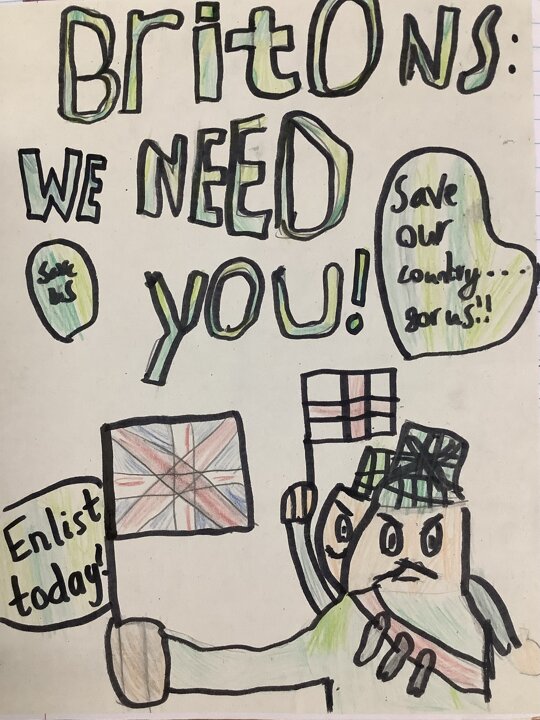 BritONS:
WE NEED
YOU!
Save
our
country....
for us!!
Save
us
Enlist
today!